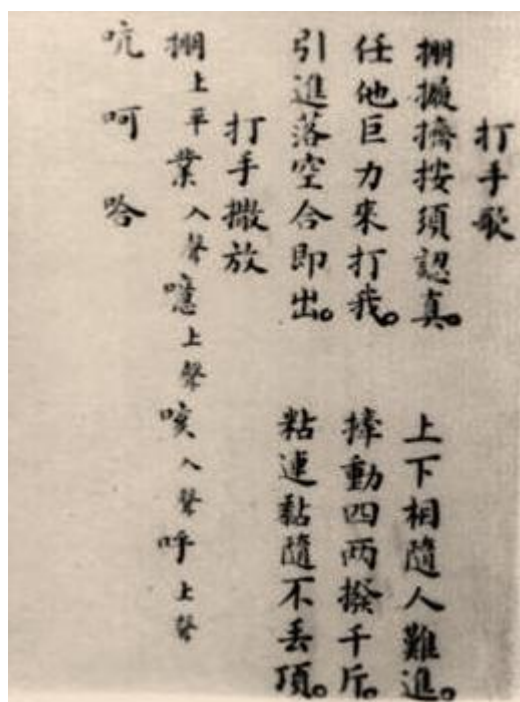 打手歌
掤擫擠按須認真。 上下相隨人難進。
任他巨力來打我。 撁動四兩撥千斤。
引進落空合即出。 粘連黏隨不丟頂。
打手撒放
掤上平 業入聲 噫上聲 咳入聲 呼上聲
吭 呵 哈